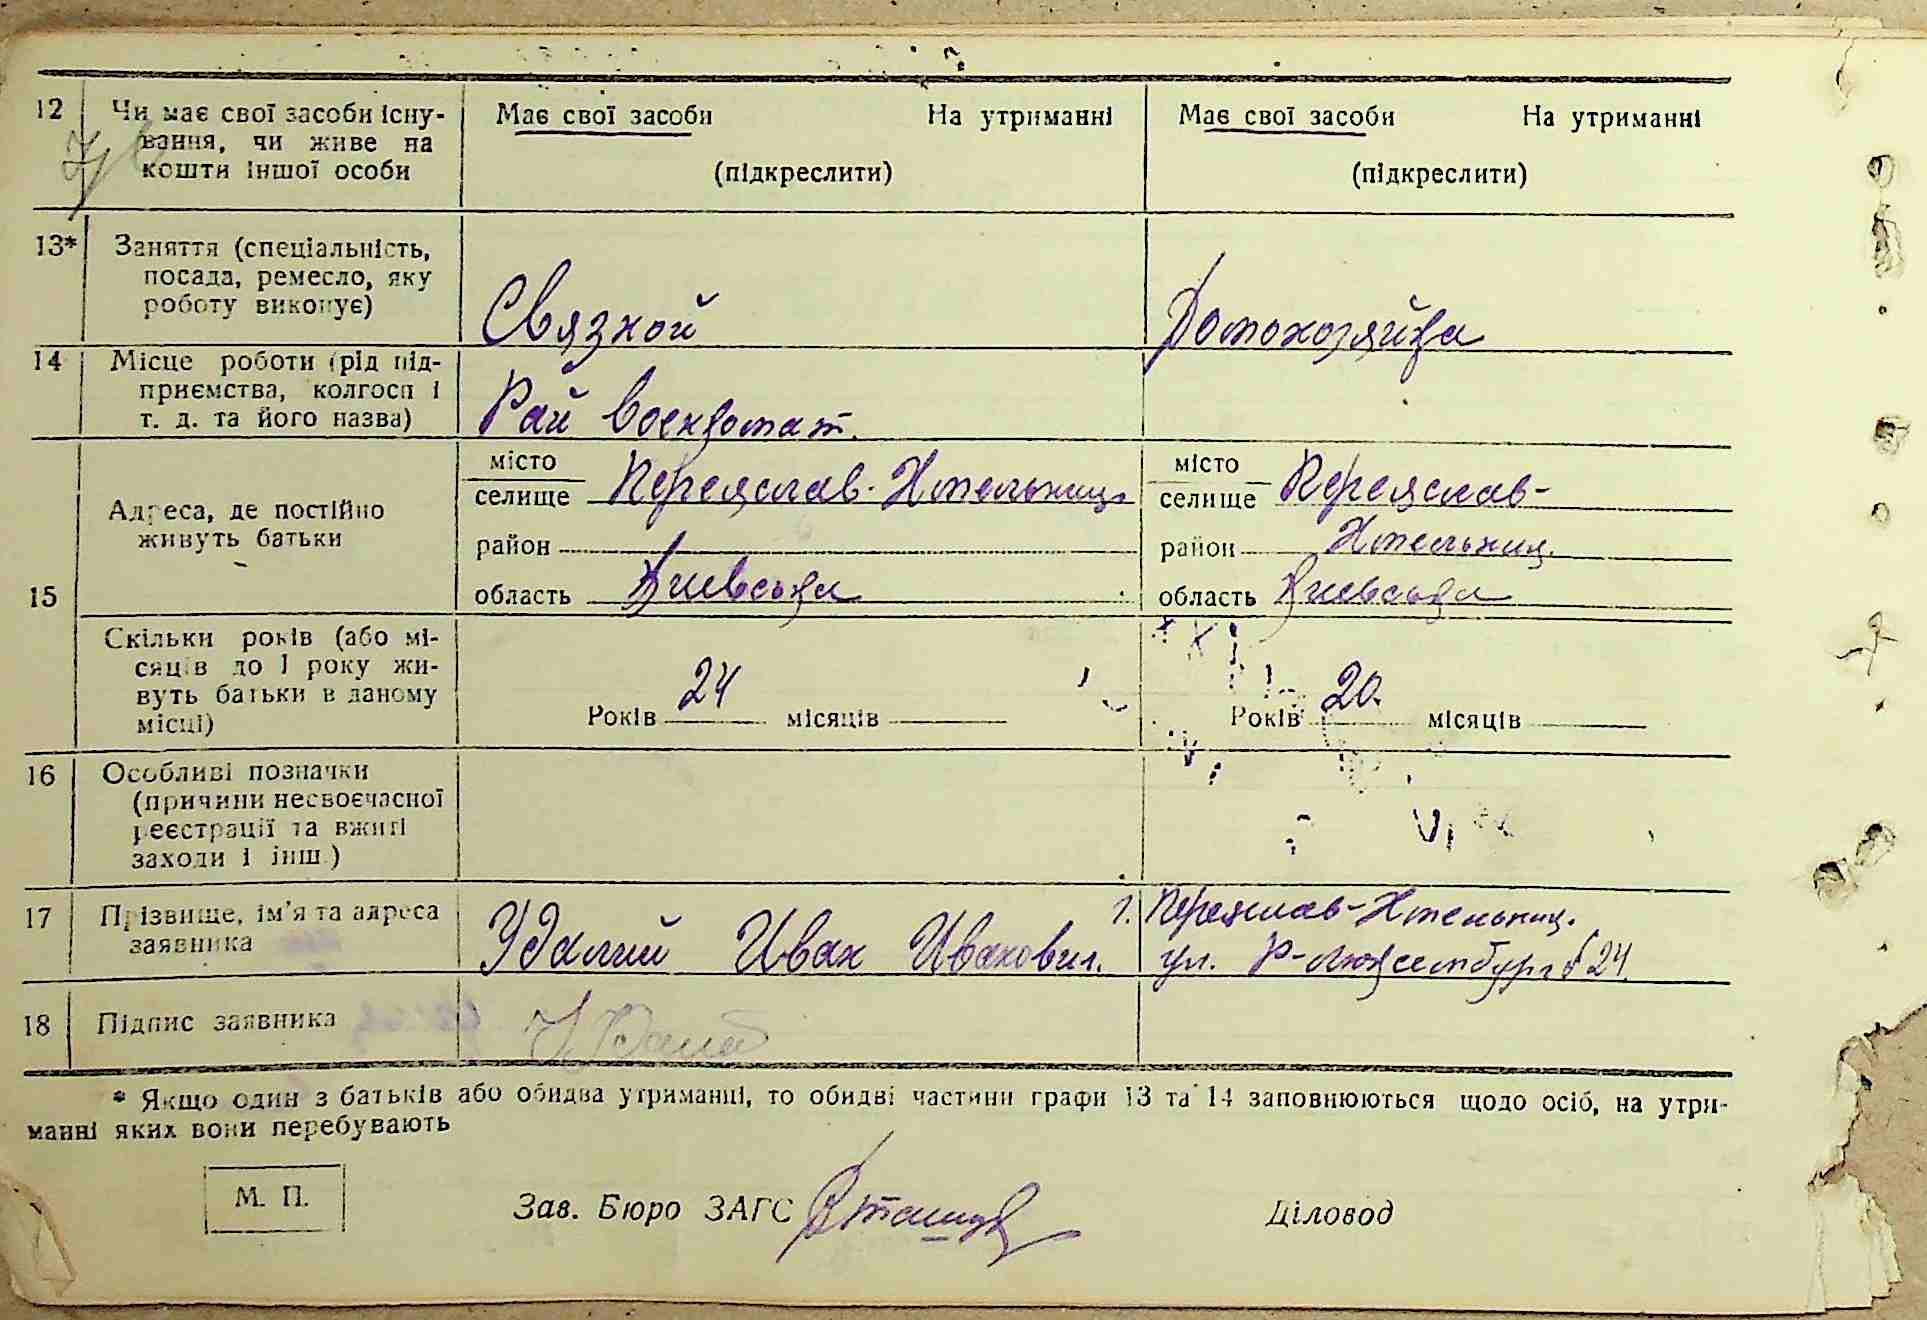 12 Чи має свої засоби існу- Має свої засоби На утриманні Має свої засоби На утриманні
вання, чи живе на
кошти іншої особи (підкреслити) (підкреслити)
13* Заняття (спеціальність,
посада, ремесло, яку
роботу виконує) Связной Домохозяйка
14 Місце роботи (рід під-
приємства, колгосп і
т. д. та його назва) Рай военкомат.
15 Адреса, де постійно
живуть батьки
місто
селище Переяслав-Хмельниц
район
область Киевська
місто
селище Переяслав-
район Хмельниц.
область Киевська
Скільки років (або мі-
сяців до 1 року жи-
вуть батьки в даному
місці)
Років 24 місяців Років 20. місяців
16 Особливі позначки
(причини несвоєчасної
реєстрації та вжиті
заходи і інш.)
17 Прізвище, ім'я та адреса
заявника
Удалий Иван Иванович.
г. Переяслав-Хмельниц.
ул. Р-Люксембург 24.
18 Підпис заявника
* Якщо один з батьків або обидва утриманні, то обидві частини графи 13 та 14 заповнюються щодо осіб, на утри-
манні яких вони перебувають
М. П. Зав. Бюро ЗАГС Діловод